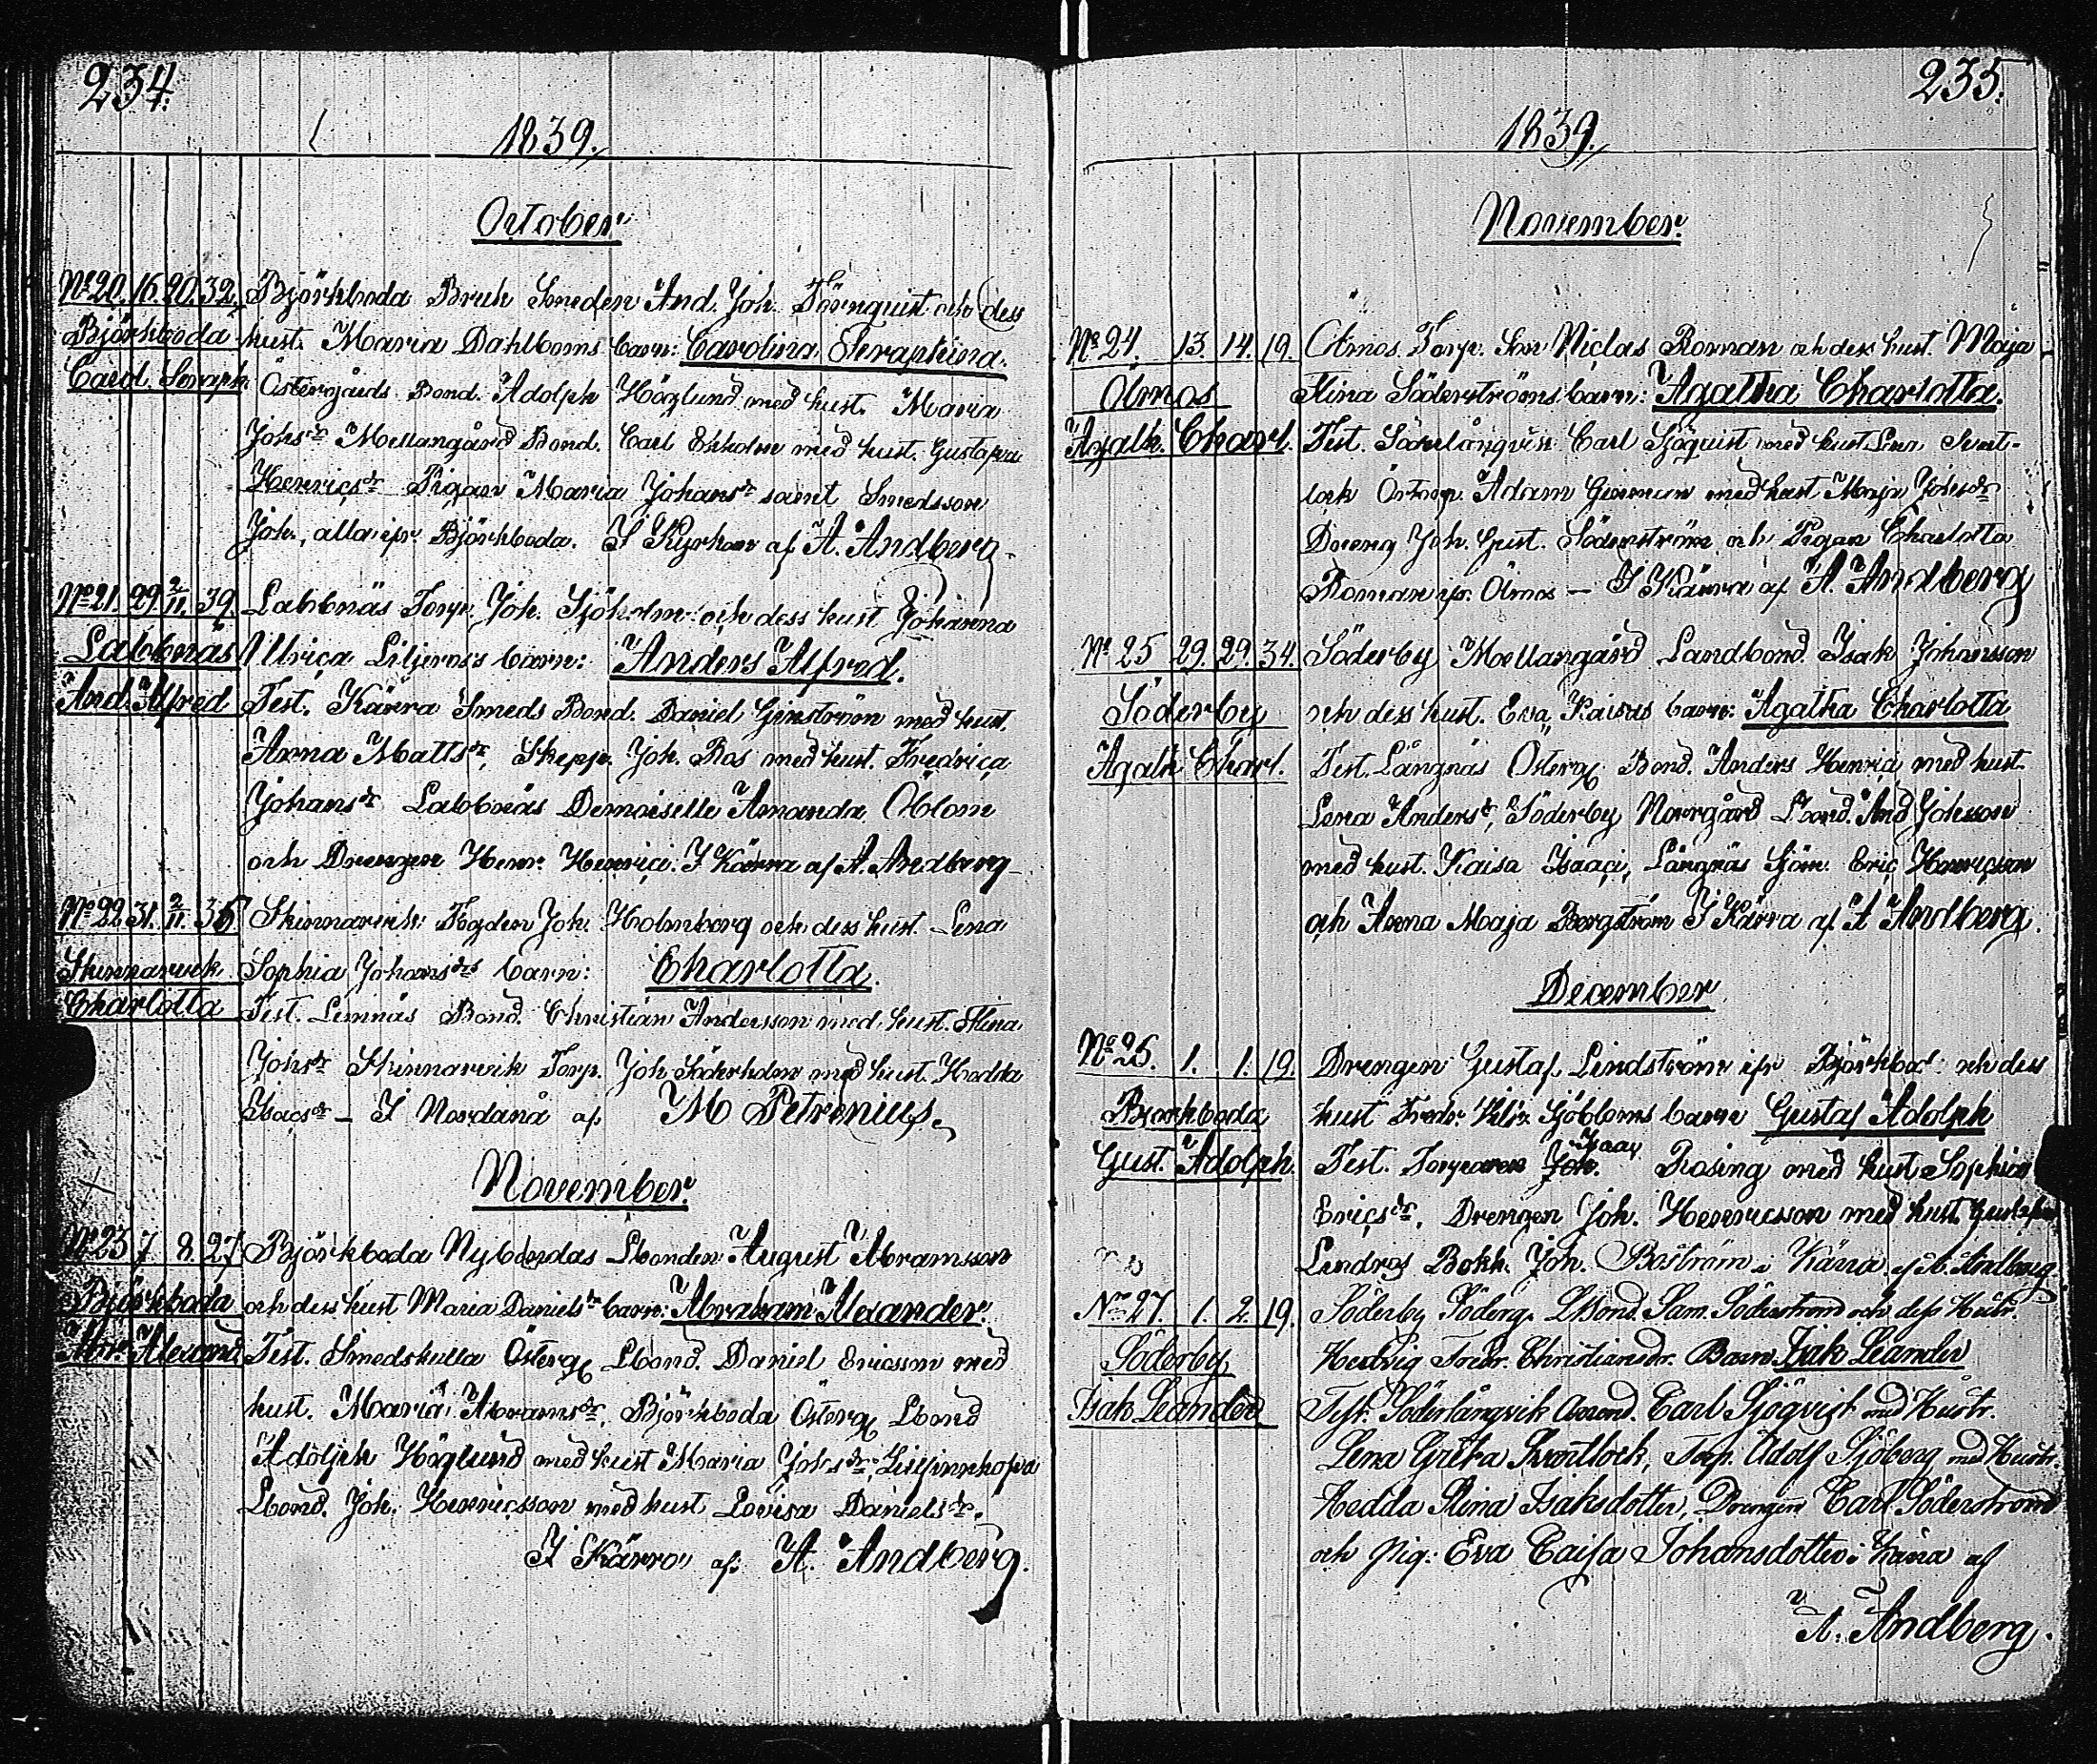 234.
1839.
October
No 20. 16. 20. 32. Björkboda Bruk Smeden And. Joh. Törnquist och dess
Björkboda hust. Maria Dahlboms barn: Carolina Seraphina.
Carol. Seraph. Östergårds Bond. Adolph Höglund med hust. Maria
Johsdr Mellangård Bond. Carl Ekholm med hust. Gustafva
Henricsdr Pigan Maria Johansdr samt Smedsson
Joh., alla ifr. Björkboda. I Kyrkan af A. Andberg
No 21. 29. 2/11. 39. Labbnäs Torp. Joh. Sjöholm och dess hust Johanna
Labbnäs Ulrica Liljeros's barn: Anders Alfred.
And. Alfred Test. Kärra Smeds Bond. Daniel Ginström med hust.
Anna Mattsdr, Skepp. Joh. Ros med hust. Fredrica
Johansdr Labbnäs Demoiselle Amanda Öblom
och Drengen Henr. Henrici. I Kärra af A. Andberg
No 22. 31. 2/11. 36 Skinnarvik Fogden Joh. Holmberg och dess hust. Lena
Skinnarvik Sophia Johansdrs barn: Charlotta.
Charlotta Test. Lemnäs Bond. Christian Andersson med hust. Stina
Johsdr Skinnarvik Torp. Joh Söderholm med hust. Hedda
Isacsdr – I Nordanå af M Petrenius.
November.
No 23 7 8. 27 Björkboda Nybondas Lbonden August Abramsson
Björkboda och dess hust Maria Danielsdr barn: Abraham Alexander.
Abr. Alexand. Test. Smedskulla Österg. Lbond. Daniel Ericsson med
hust. Maria Abramsdr, Björkboda Österg. Lbond
Adolph Höglund med hust Maria Johsdr, Liljinnhofva
Lbond. Joh. Henricsson med hust Lovisa Danielsdr.
I Kärra af A. Andberg.
235.
1839.
November.
No 24. 13. 14. 19. Ölmos Torp. Son Niclas Roman och dess hust. Maja
Ölmos Stina Söderströms barn: Agatha Charlotta.
Agath. Charl. Test. Söderlångvik Carl Sjöquist med hust Lena Svart-
lock Österg. Adam Ginman med hust Maja Johsdr
Dreng Joh. Gust. Söderström och Pigan Charlotta
Roman ifr. Ölmos – I Kärra af A. Andberg
No 25 29. 29. 34. Söderby Mellangård Landbond. Isak Johansson
Söderby och dess hust. Eva Kaisas barn: Agatha Charlotta
Agath Charl. Test. Långnäs Österg. Bond. Anders Henrici med hust.
Lena Andersdr, Söderby Norrgård Lbond. And Johsson
med hust. Kaisa Isaaci, Långnäs Sjöm. Eric Henricsson
och Anna Maja Bergström I Kärra af A Andberg.
December
No 26. 1. 1. 19. Drengen Gustaf Lindström ifr Björkbod och dess
Björkboda hust Fredr. Ulr. Sjöbloms barn Gustaf Adolph
Gust. Adolph. Test. Torparen Joh. Isaac Rosing med hust Sophia
Ericsdr. Drengen Joh. Henricsson med hust Gustafva
Lindros Bokh. Joh. Boström i Kärra af A. Andberg
No 27. 1. 2. 19. Söderby Söderg. Lbond. Sam. Söderström och dess Hustr.
Söderby Hedvig Fredr. Christiansdr. Barn Isak Leander
Isak Leander Test. Söderlångvik Bond. Carl Sjöqvist med Hustr.
Lena Greta Svartlock, Torp. Adolf Sjöberg med Hustr.
Hedda Stina Isaksdotter, Drengen Carl Söderström
och Pig. Eva Caisa Johansdotter i Kärra af
A. Andberg.